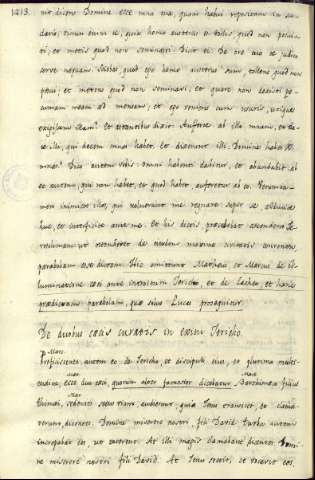 1213.
nit dicens Domine ecce mna tua, quam habui repositam in su-
dario, timui enim te, quia homo austerus es tollis quod non posuis-
ti, et metis quod non seminasti. Dicit ei De ore tuo te judico
serve nequam. Sciebas, quod ego homo austerus sum tollens quod non
posui, et metens quod non seminavi, et quare non dedisti pe-
cuniam meam ad mensam, et ego veniens cum usuris, utique
exigissem illam? Et astantibus dixit Auferte ab illo mnam, et da-
te illi, qui decem mnas habet. Et dixerunt illi Domine habet X.
mnas. Dico autem vobis omni habenti dabitur, et abundabit ab
eo autem, qui non habet, et quod habet auferetur ab eo. Verumta-
men inimicos illos, qui noluerunt me regnare super se adducite
huc, et interficite ante me. Et his dictis praecedebat ascendens Je-
rosolimam
parabolam esse Matheus, et Marcus de il-
luminatione Jericho, et de Zacheo, et hanc
parabolam, quae solus Lucas prosequitur.
De duobus caecis curatis in exitu Jericho.
Proficiscente autem eo de Jericho, et discipulis eius, et plurima multi-
tudine, ecce duo caeci, Barthimaeus filius
Thimaei, sedentes secus viam, audierunt, quia Jesus transiret, et clama-
verunt, dicentes, Domine miserere nostri fili David turba autem
increpabat eos, ut tacerent. At illi magis clamabant dicentes. Domi-
ne miserere nostri fili David. At Jesus stetit, et vocavit eos,